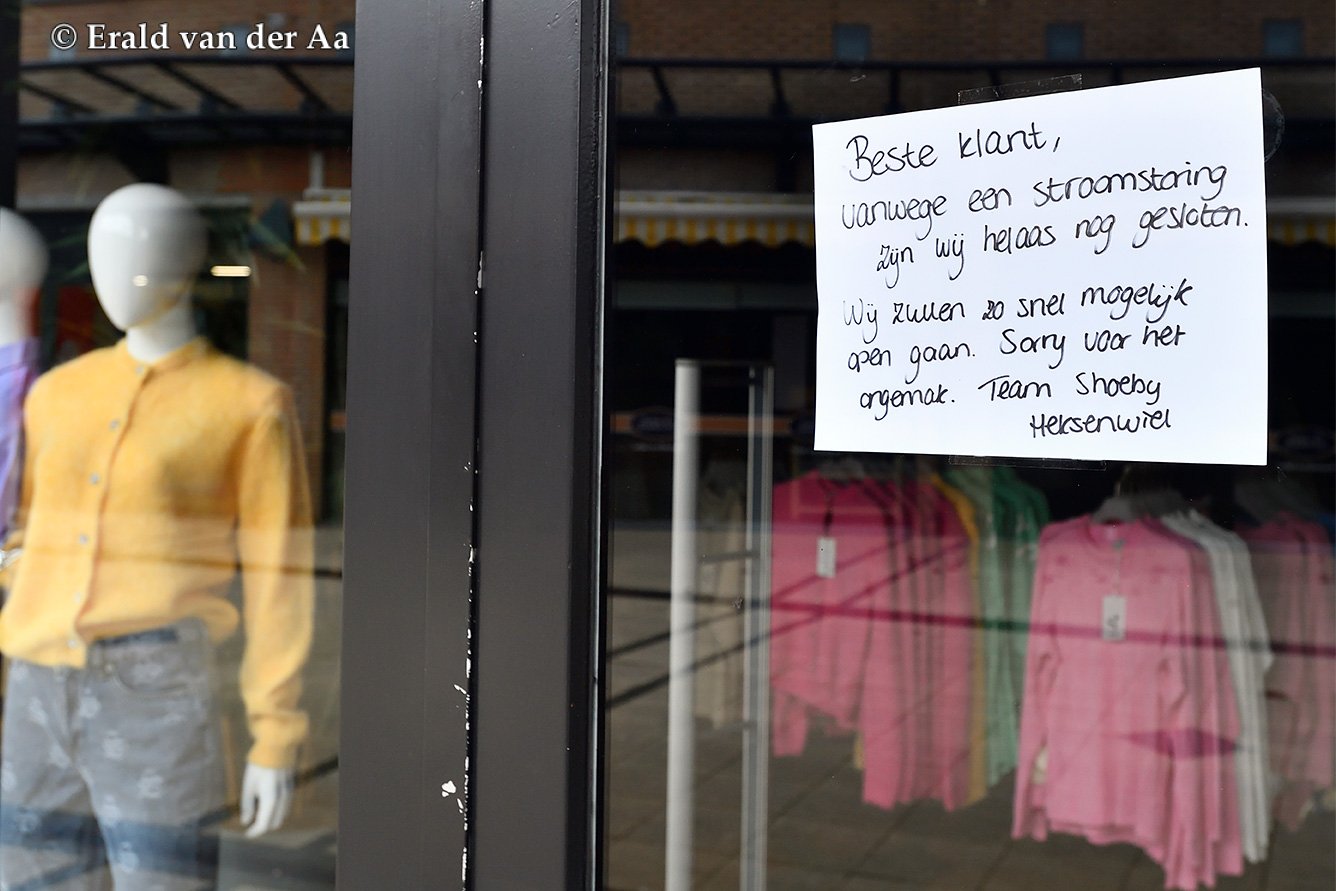 © Erald van der Aa
Beste klant,
vanwege een stroomstoring
zijn wij helaas nog gesloten.
Wij zullen zo snel mogelijk
open gaan. Sorry voor het
ongemak. Team Shoeby
Heksenwiel